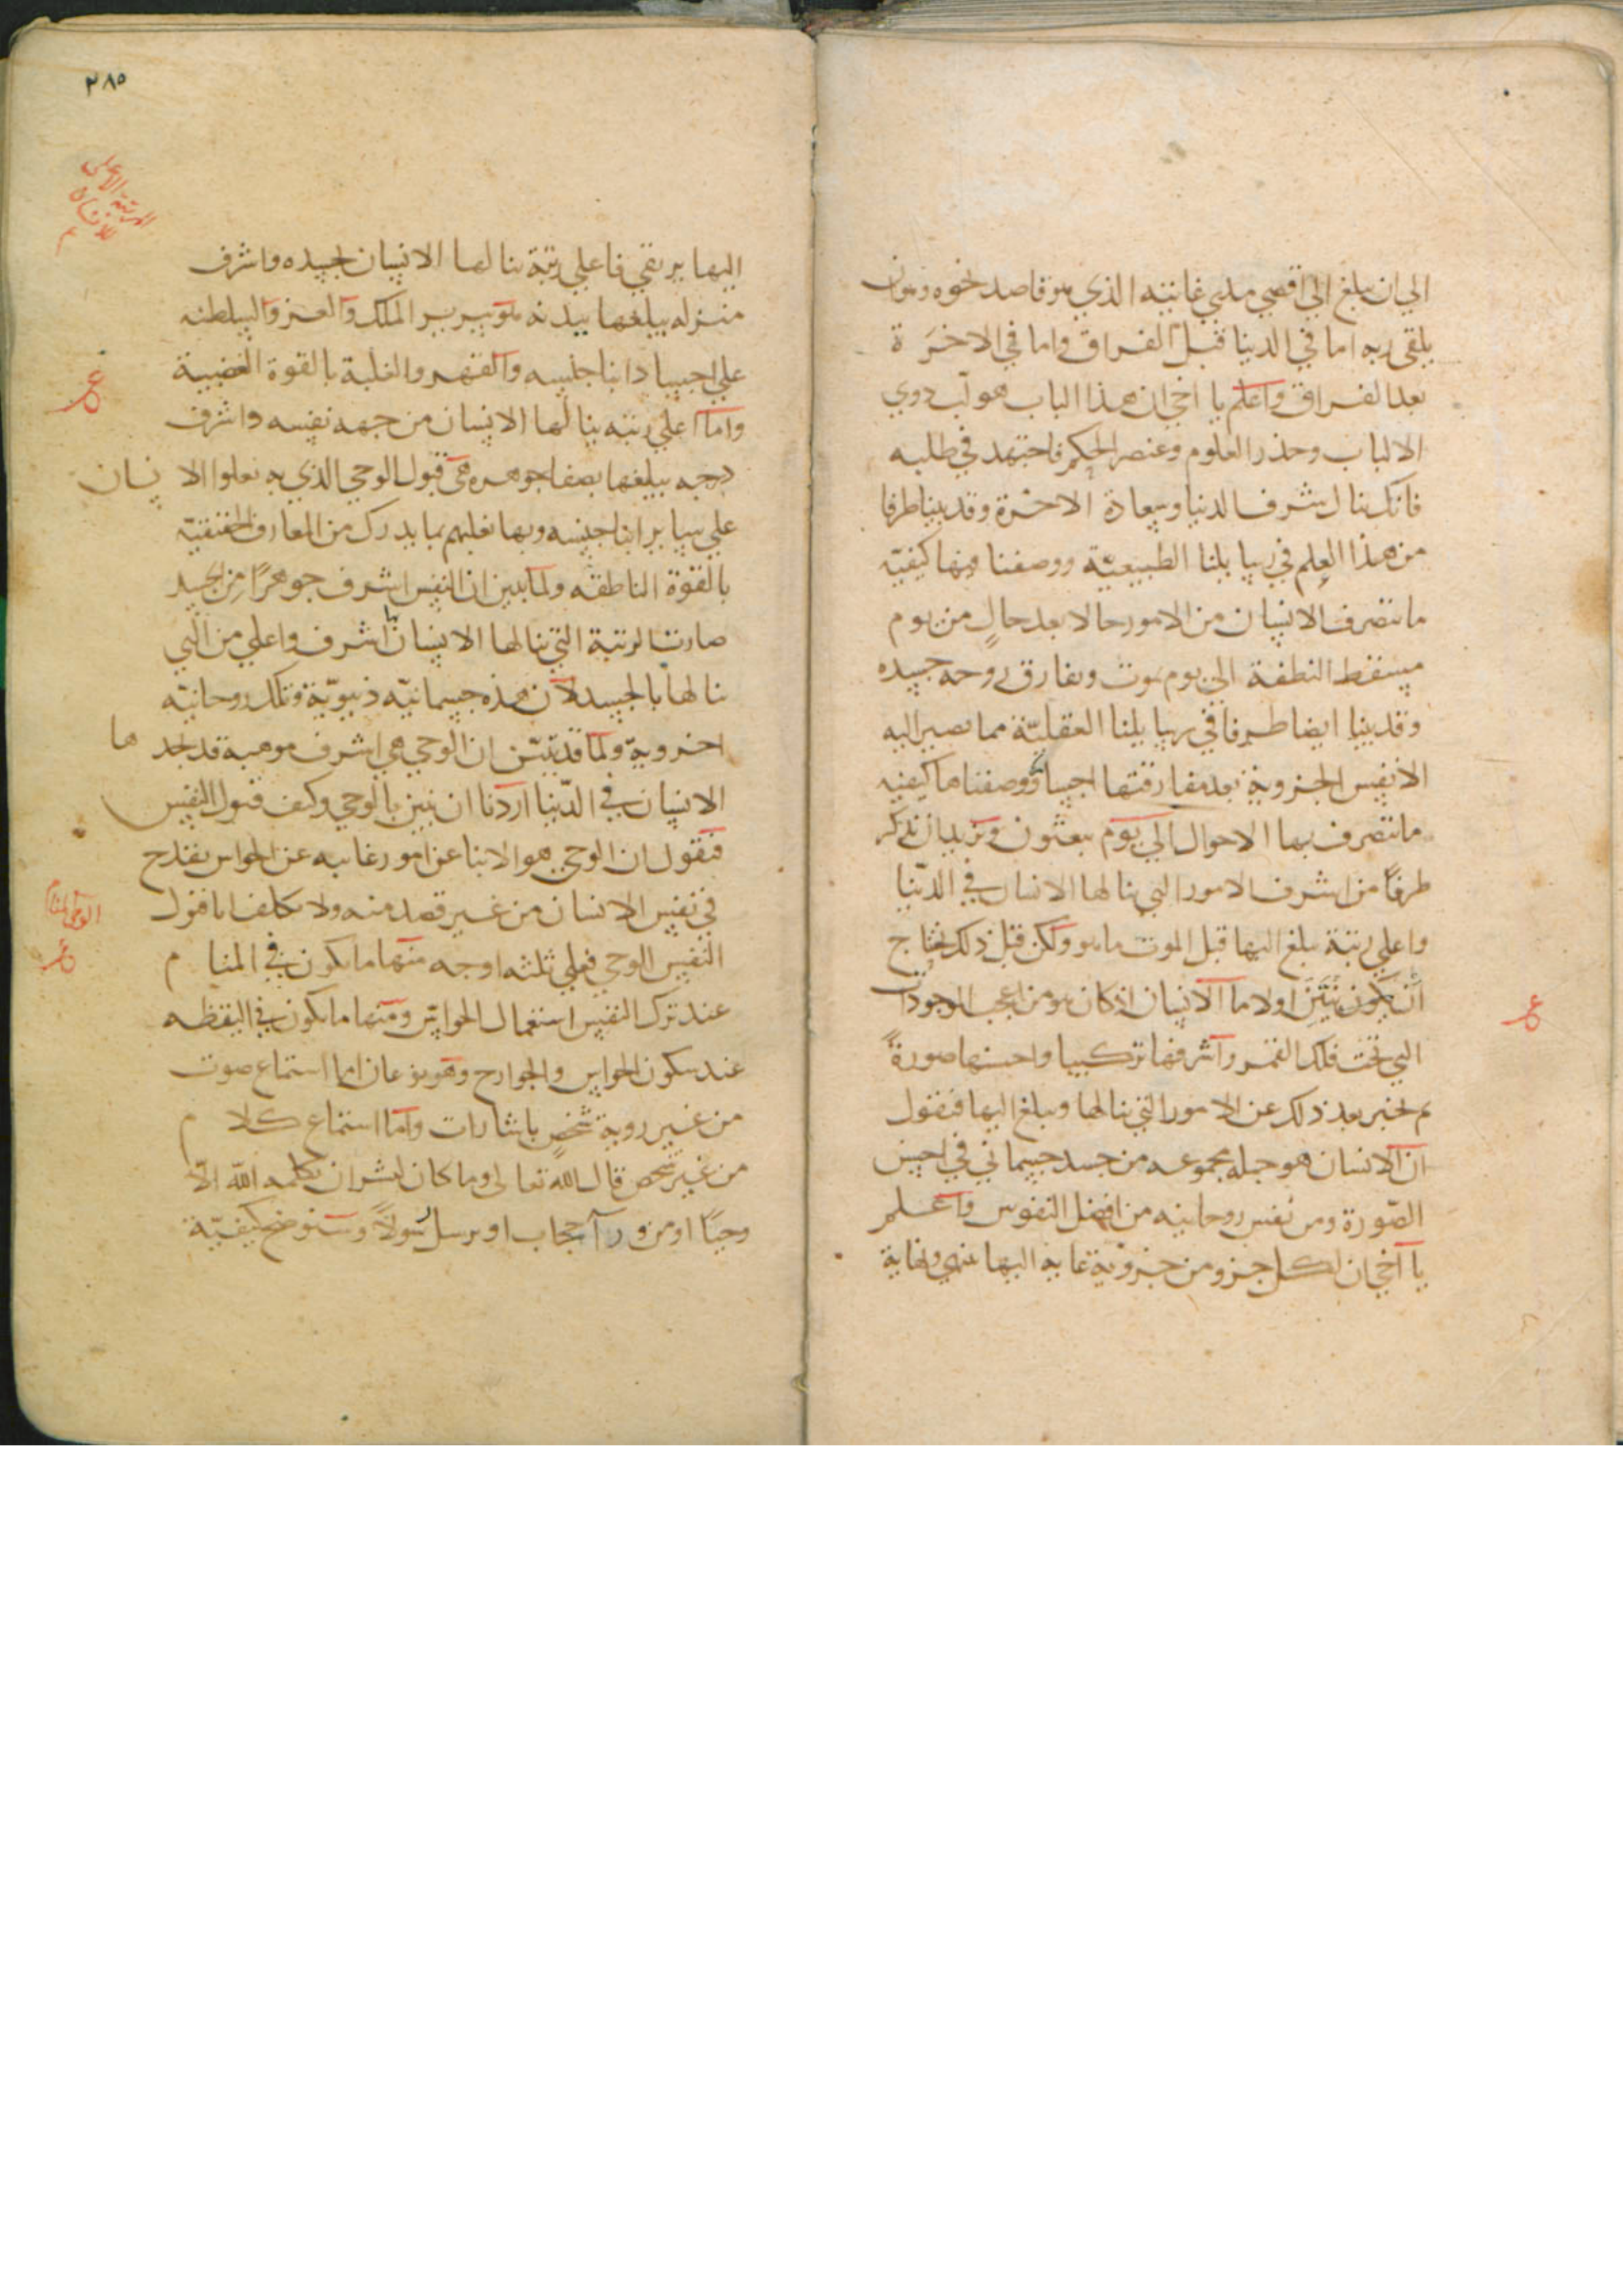 الي ان يبلغ الي اقصي مدي غاياته الذي هو قاصد نحوه وهو ان
يلقي ربه اما في الدنيا قبل الفراق واما في الاخرة
بعد الفراق واعلم يا اخي ان هذا الباب هو لب ذوي
الالباب وجذر العلوم وعنصر الحكم فاجتهد في طلبه
فانك تنال شرف الدنيا وسعادة الاخرة وقد بينا طرفا
من هذا العلم في رسايلنا الطبيعية ووصفنا فيها كيفية
ما تتصرف الانسان من الامور حالا بعد حال من يوم
مسقط النطفة الي يوم يموت وتفارق روحه جسده
وقد بينا ايضا طرفا في رسايلنا العقلية مما تصير اليه
الانفس الجزوية بعد مفارقتها اجسادها ووصفنا كيفية
ما تتصرف بها الاحوال الي يوم يبعثون ونريد ان نذكر
طرفا من اشرف الامور التي ينالها الانسان في الدنيا
واعلي رتبة يبلغ اليها قبل الموت ما هو ولكن قبل ذلك نحتاج
ان يكون نبين اولا ما الانسان اذ كان هو من اعجب الموجودات
التي تحت فلك القمر واشرفها تركيبا واحسنها صورة
ثم نخبر بعد ذلك عن الامور التي ينالها ويبلغ اليها فنقول
ان الانسان هو جملة مجموعه من جسد جسماني في احسن
الصورة ومن نفس روحانيه من افضل النفوس واعلم
يا اخي ان لكل جزو من جزوية غاية اليها ينتهي ونهاية
٢٨٥
المرتبة الاعلى
للانسان
اليها يرتقي فاعلي رتبة ينالها الانسان بجسده واشرف
منزله يبلغها ببدنه هو سرير الملك والعز والسلطنه
علي اجساد ابنا جنسه والقهر والغلبة بالقوة الغضبية
واما اعلي رتبه ينالها الانسان من جهه نفسه واشرف
درجه يبلغها بصفا جوهره هي قبول الوحي الذي به يعلوا الانسان
علي ساير ابنا جنسه وبها يغلبهم بما يدرك من المعارف الحقيقية
بالقوة الناطقه ولما تبين ان النفس اشرف جوهرا من الجسد
صارت الرتبة التي ينالها الانسان بها اشرف واعلي من التي
ينالها بالجسد لان هذه جسمانيه دنيوية وتلك روحانيه
اخروية ولما قد تبين ان الوحي هي اشرف موهبة قد يجدها
الانسان في الدنيا اردنا ان نبين ما الوحي وكيف قبول النفس
فنقول ان الوحي هو الانبا عن امور غايبه عن الحواس يقدح
في نفس الانسان من غير قصد منه ولا تكلف اما قبول
الوحي المنام
النفس الوحي فعلي ثلثه اوجه منها ما يكون في المنام
عند ترك النفس استعمال الحواس ومنها ما يكون في اليقظه
عند سكون الحواس والجوارح وهو نوعان اما استماع صوت
من غير روية شخص باشارات واما استماع كلام
من غير شخص قال الله تعالى وما كان لبشر ان يكلمه الله الا
وحيا او من ورآ حجاب او يرسل رسولا وسنوضح كيفية